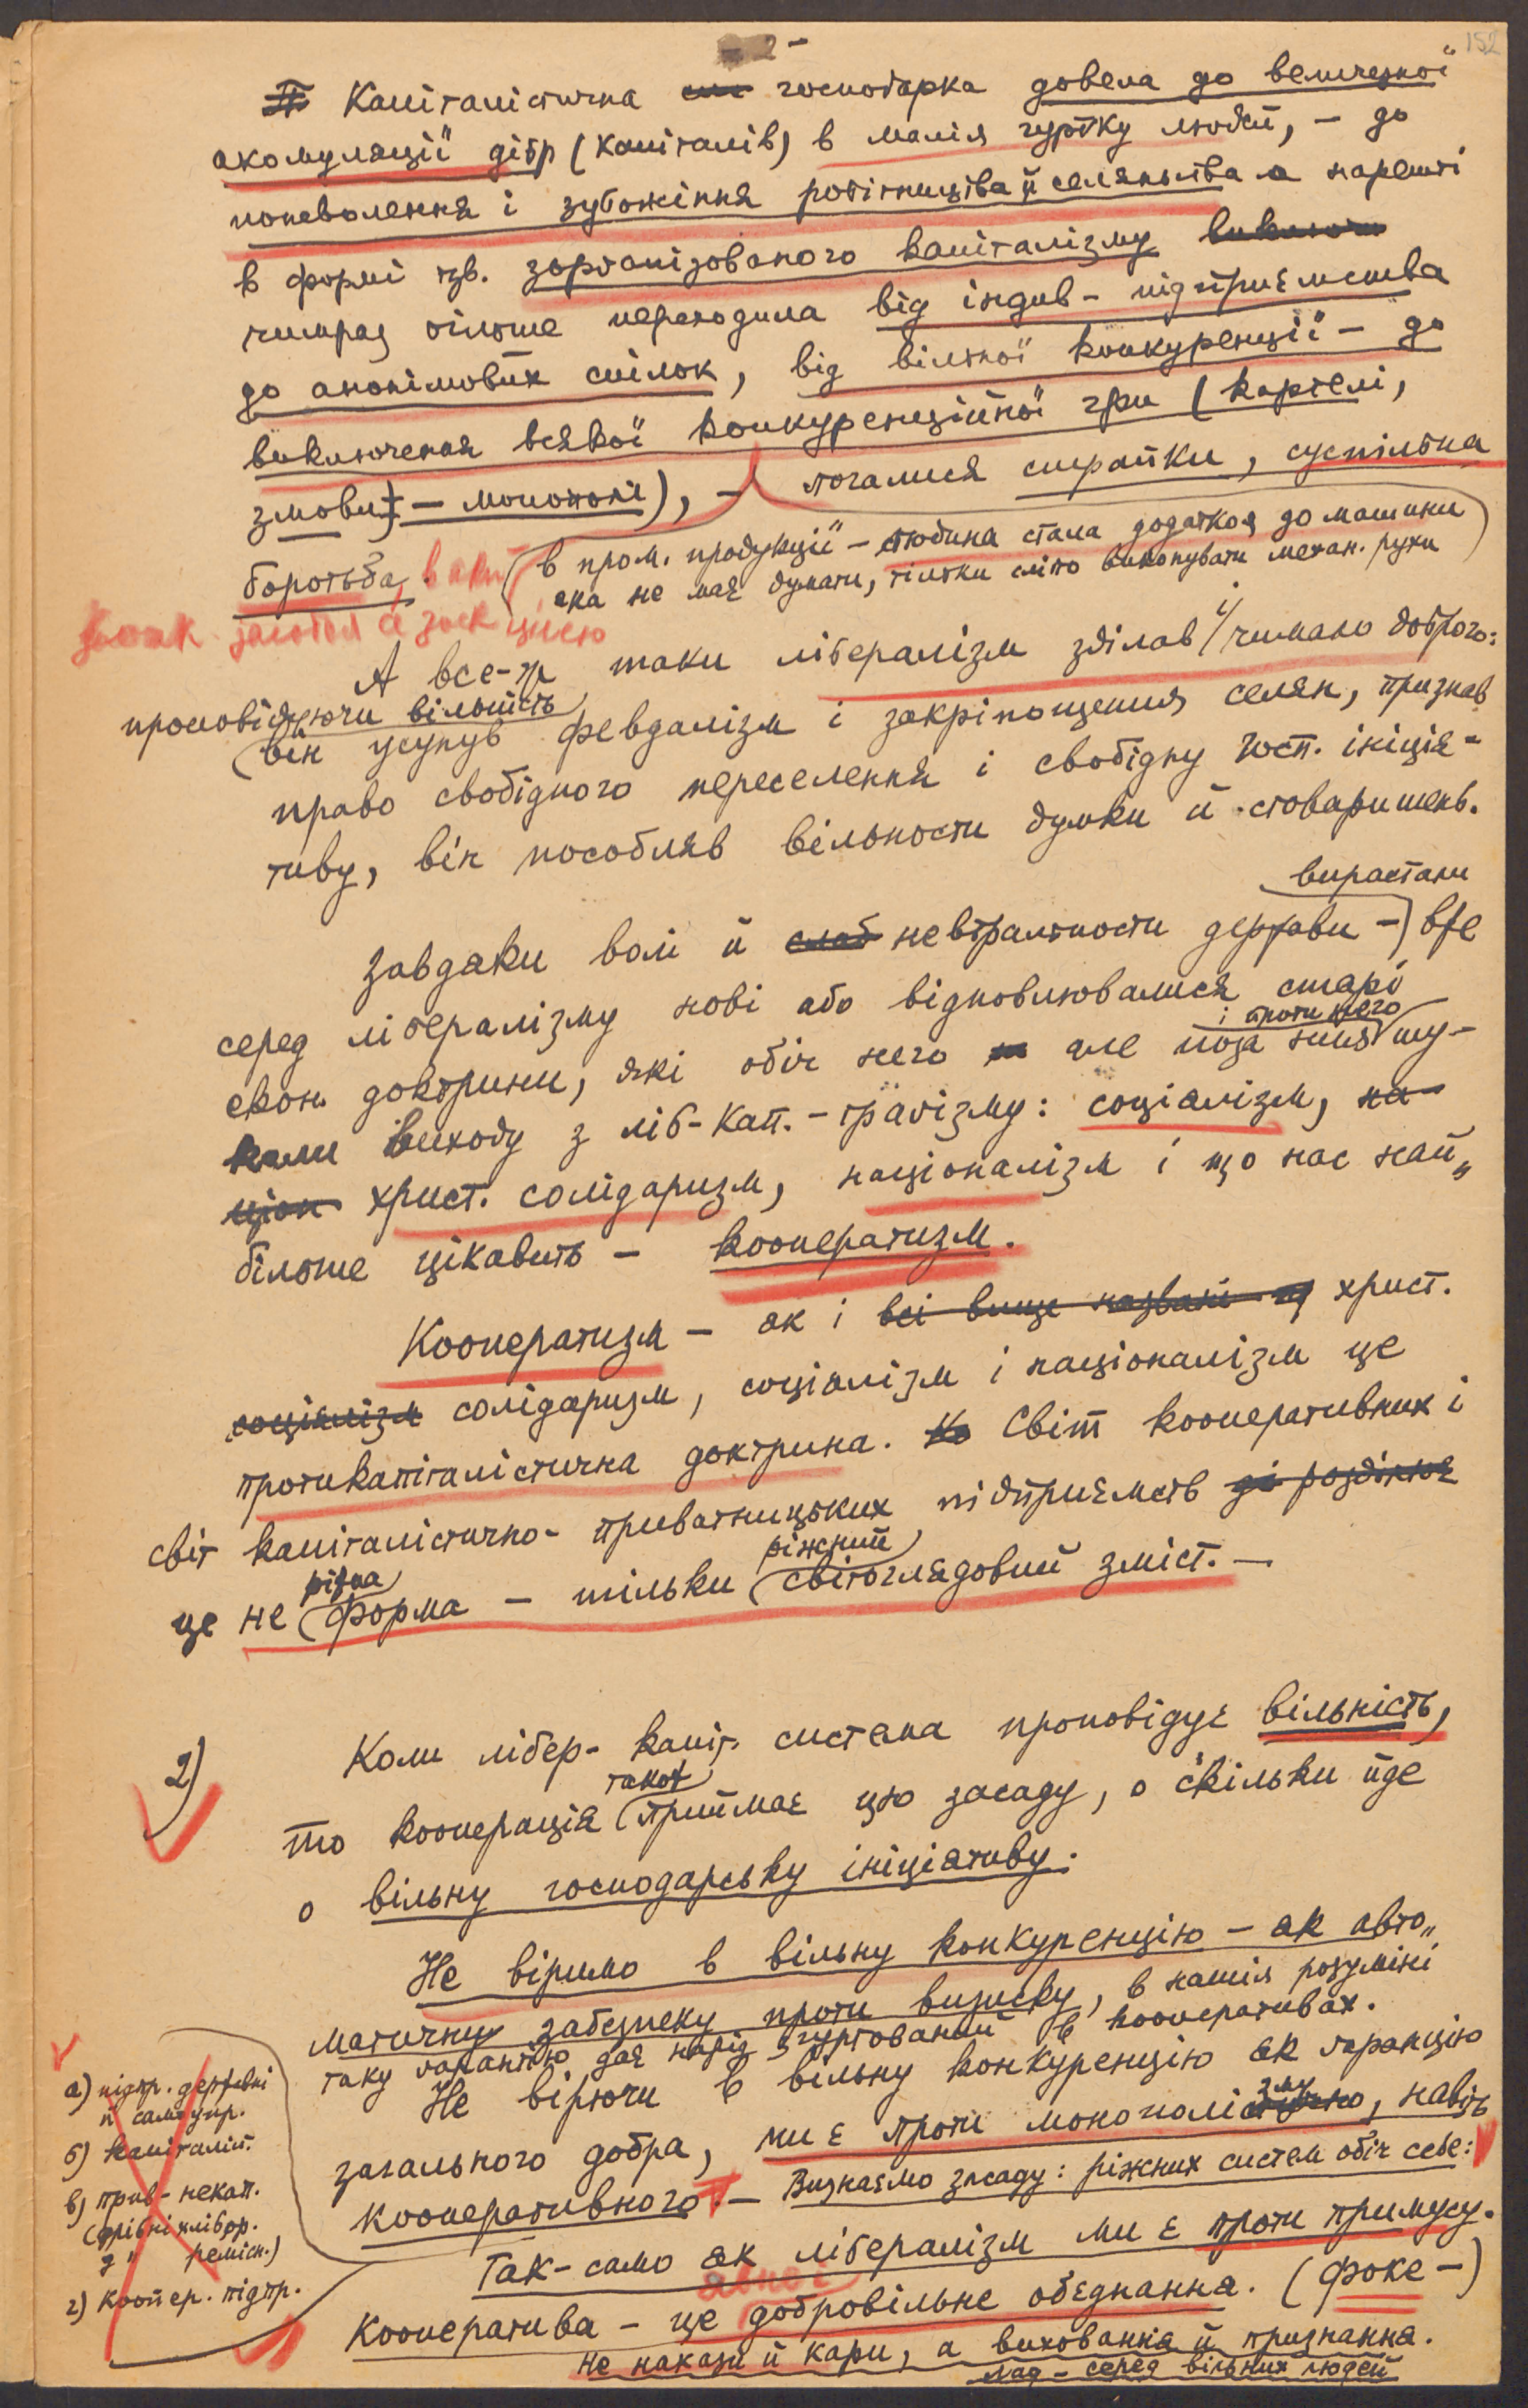 - 2 -
152
Капіталістична господарка довела до величезної
акомуляції дібр (капіталів) в малім гуртку людей, – до
поневолення і зубожіння робітництва й селянства а нарешті
в формі тзв. зорганізованого капіталізму
чимраз більше переходила від індив- підприємства
до анонімових спілок, від вільної конкуренції – до
виключення всякої конкуренційної гри (картелі,
змови – монополі), – почалися страйки, суспільна
боротьба,
(в пром. продукції – людина стала додатком до машини
яка не має думати, тільки сліпо виконувати механ. рухи)
А все-ж таки лібералізм зділав й чимало доброго:
проповідуючи вільність
він усунув февдалізм і закріпощення селян, признав
право свобідного переселення і свобідну госп. ініція-
тиву, він пособляв вільности думки й стоваришень.
вирастали
Завдяки волі й невтральности держави – вже
серед лібералізму нові або відновлювалися старі
і проти него
екон. доктрини, які обіч него але поза ним шу-
кали виходу з ліб-кап.-траґізму: соціалізм,
христ. солідаризм, націоналізм і що нас най-
більше цікавить – кооператизм.
Кооператизм – як і всі вище названі христ.
соціялізм солідаризм, соціалізм і націоналізм це
протикапіталістична доктрина. Світ кооперативних і
світ капіталістично- приватницьких підприємств
різна ріжний
це не форма – тільки світоглядовий зміст. –
2) Коли лібер- капіт. система проповідує вільність,
також
то кооперація приймає цю засаду, о скільки йде
о вільну господарську ініціативу.
Не віримо в вільну конкуренцію – як авто-
матичну забезпеку проти визиску, в нашім розумінні
таку гарантію дає нарід згуртований в кооперативах.
Не вірючи в вільну конкуренцію як гаранцію
загального добра, ми є проти монополізму, навіть
кооперативного. – Визнаємо засаду: ріжних систем обіч себе:
а) підпр. державні
й самоупр.
б) капіталіст.
в) прив- некап.
(дрібні хлібор.
" ремісн.)
г) коопер. підпр.
Так-само як лібералізм ми є проти примусу.
Кооператива – це добровільне обєднання. (Фоке –)
не накази й кари, а виховання й признання.
лад – серед вільних людей